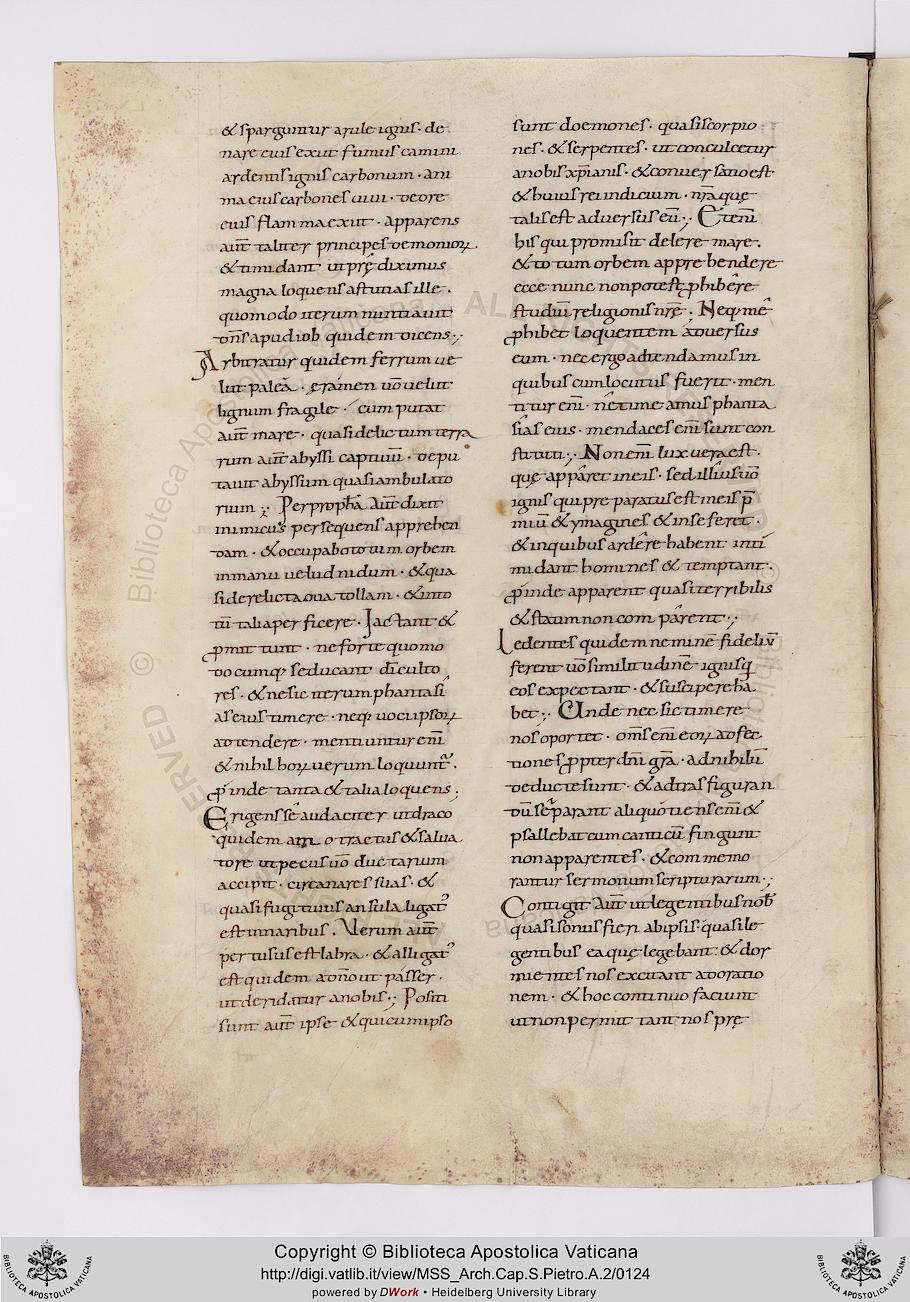 & sparguntur asule ignis· de
nare eius exiit fumus camini
ardentis ignis carbonum· ani
ma eius carbones uiui· de ore
eius flamma exiit· apparens
aut̄ taliter principes demonioꝝ·
& timidant ut prę diximus
magna loquens astutias ille·
quomodo iterum nuntiauit
dn̄s apud iob quidem dicens·;
Arbitratur quidem ferrum ue
lut paleā· ęramen uō uelut
lignum fragile· cum putat
aut̄ mare· quasi delictum terra
rum aut̄ abyssi captiuū· depu
tauit abyssum quasi ambulato
rium·; Per prophā aut̄ dixit
inimicus persequens apprehen
dam· & occupabo totum orbem
in manu uelud nidum· & qua
si derelicta oua tollam· & into
tū talia per ficere· Iactant &
ꝓmittunt· ne forte quomo
documq; seducant dī culto
res· & ne sic iterum phantasi
as eius timere· neq; uoci ipsoꝝ
adtendere· mentiuntur enī
& nihil hoꝝ uerum loquunt̄·
ꝓinde tanta & talia loquens;
Erigens sē audaciter ut draco
quidem am o tractus & salua
tore ut pecus uō ductarum
accipit· circa nares suas· &
quasi fugitiuus ansula ligat᷒
est in naribus· Uerum aut̄
pertusus est labra· & alligat᷒
est quidem a dn̄o ut passer·
ut deridatur a nobis·; Positi
sunt aut̄ ipse & qui cum ipso
sunt doemones· quasi scorpio
nes· & serpentes· ut conculcetur
a nobis xp̄ianis· & conuersatio est
& huius rei indicium· nr̄a quę
talis est aduersus eū·; Etenī
his qui promisit delere mare·
& totum orbem apprehendere
ecce nunc non potest ꝓhibere
studiū religionis nr̄e· Neq; mē
ꝓhibet loquentem aduersus
eum· nec ergo adtendamus in
quibus cum locutus fuerit· men
titur enī· nē timeamus phanta
sias eius· mendaces enī sunt con
stituti·; Non enī lux uera est·
quę apparet in eis· sed illius uō
ignis qui pre paratus est in eis p̄
miū & ymagines & in se feret·
& in quibus ardere habent inti
midant homines & temptant·
ꝓinde apparent quasi terribilis
& statum non com parent·;
Ledentes quidem neminē fideliū
ferent uō similitudinē ignis q
eos expectant· & suscipere ha
bet·; Unde nec sic timere
nos oportet· om̄s enī eoꝝ adfec
tiones ꝓpter dn̄i grā· ad nihilū
deducte sunt· & ad tras figuran
dū separant aliquotiens enī &
psallebat cum canticū fingunt
non apparentes· & com memo
rantur sermonum scripturarum·;
Contigit aut̄ ut legentibus nob᷒
quasi sonus fieri ab ipsis· quasi le
gentibus ea quę legebant· & dor
mientes nos excitant ad oratio
nem· & hoc continuo faciunt
ut non permittant nos prę
Copyright © Biblioteca Apostolica Vaticana
http://digi.vatlib.it/view/MSS_Arch.Cap.S.Pietro.A.2/0124
powered by DWork • Heidelberg University Library
BIBLIOTECA APOSTOLICA VATICANA
BIBLIOTECA APOSTOLICA VATICANA